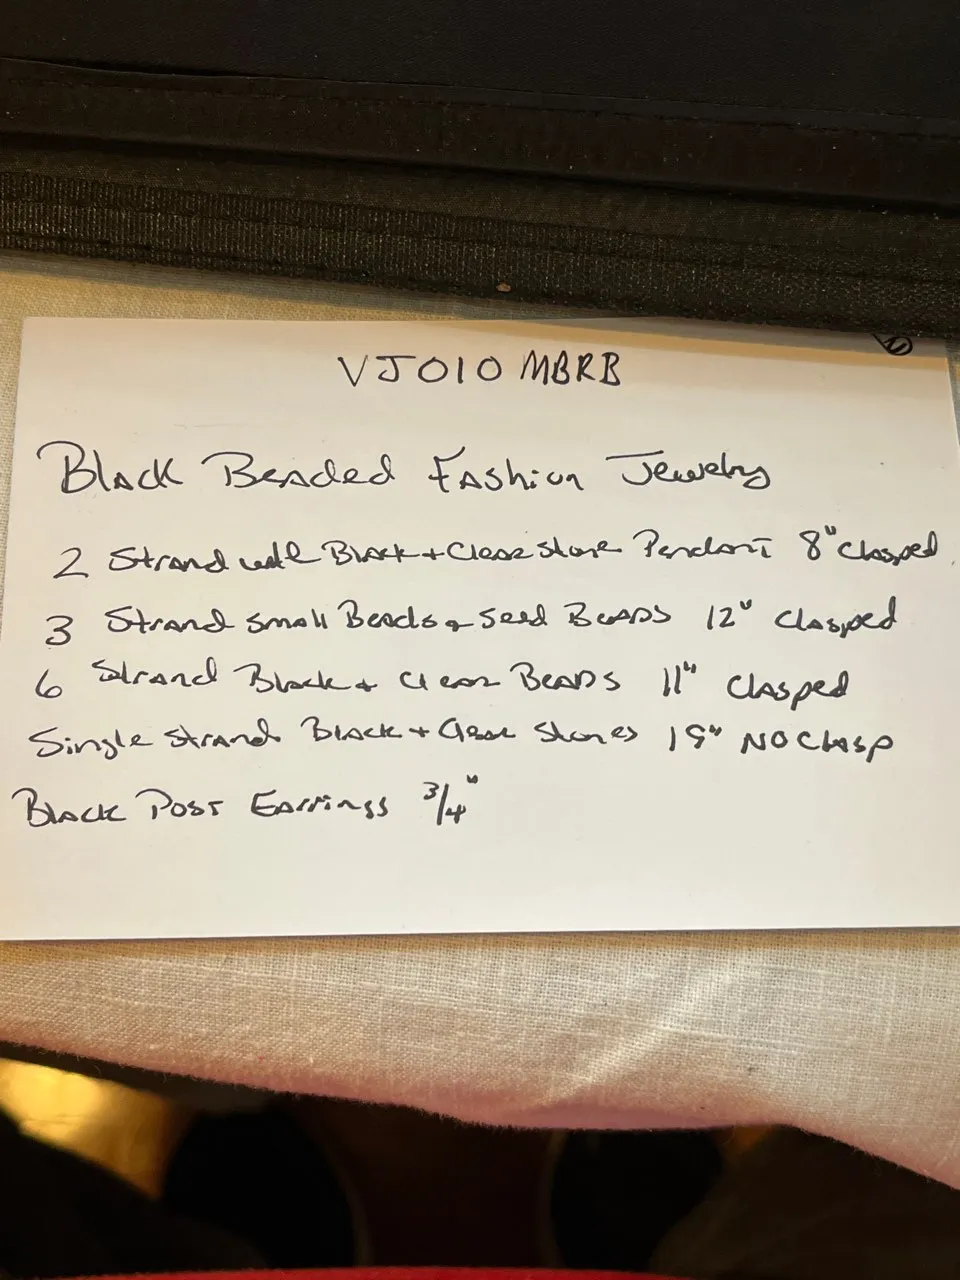 VJ010 MBRB
Black Beaded Fashion Jewelry
2 Strand with Black + Clear Stone Pendant 8" Clasped
3 Strand Small Beads & Seed Beads 12" Clasped
6 Strand Black + Clear Beads 11" Clasped
Single Strand Black + Clear Stones 19" NO Clasp
Black Post Earrings 3/4"